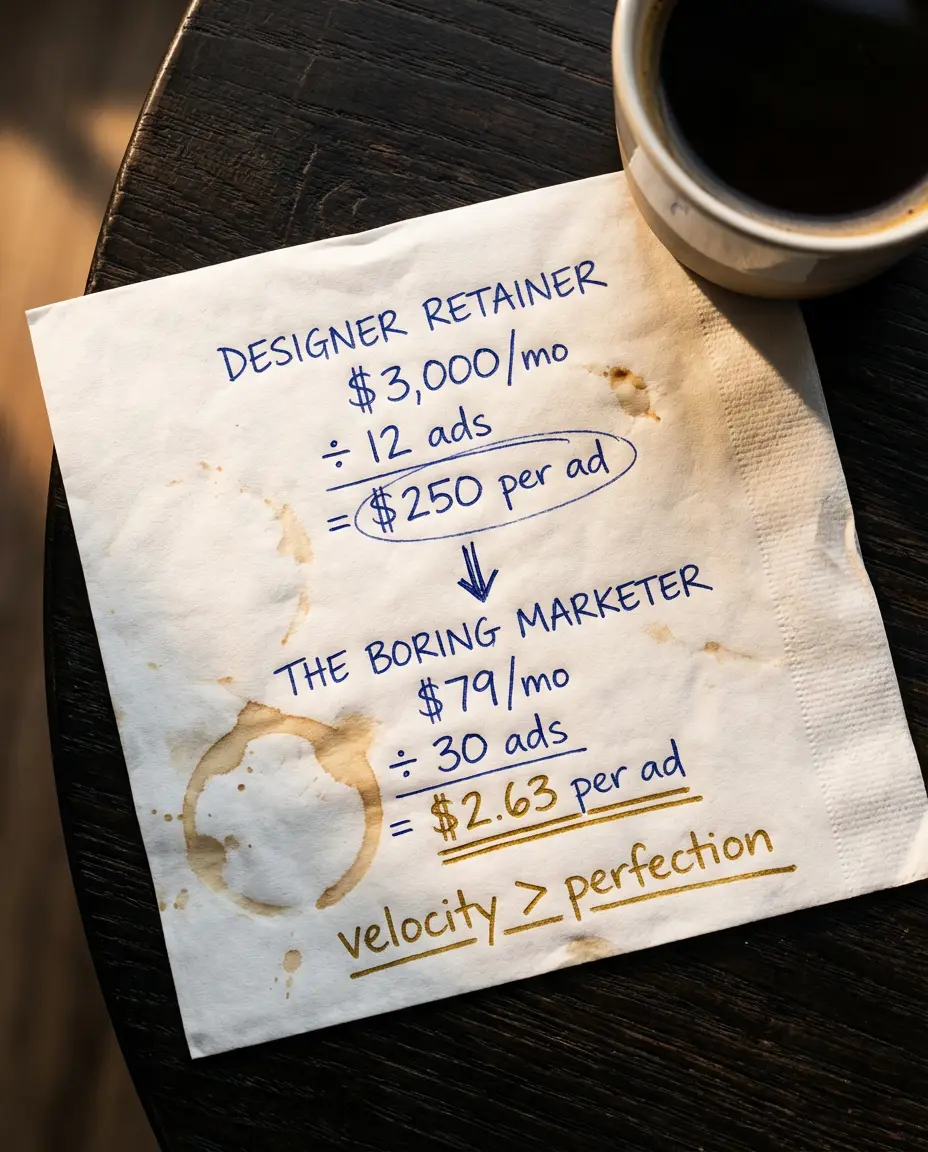 DESIGNER RETAINER
$3,000/mo
÷ 12 ads
= $250 per ad
THE BORING MARKETER
$79/mo
÷ 30 ads
= $2.63 per ad
velocity > perfection